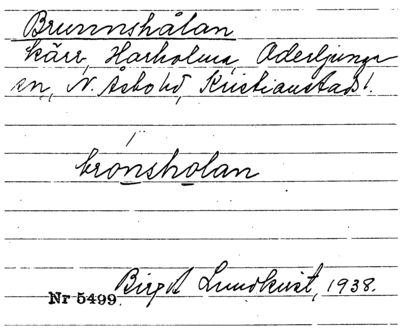 Brunnshålan
kärr, Harholma, Oderljunga
sn, N. Åsbo hd, Kristianstads l.
bronsholan
Birgit Lundkvist, 1938.
Nr 5499